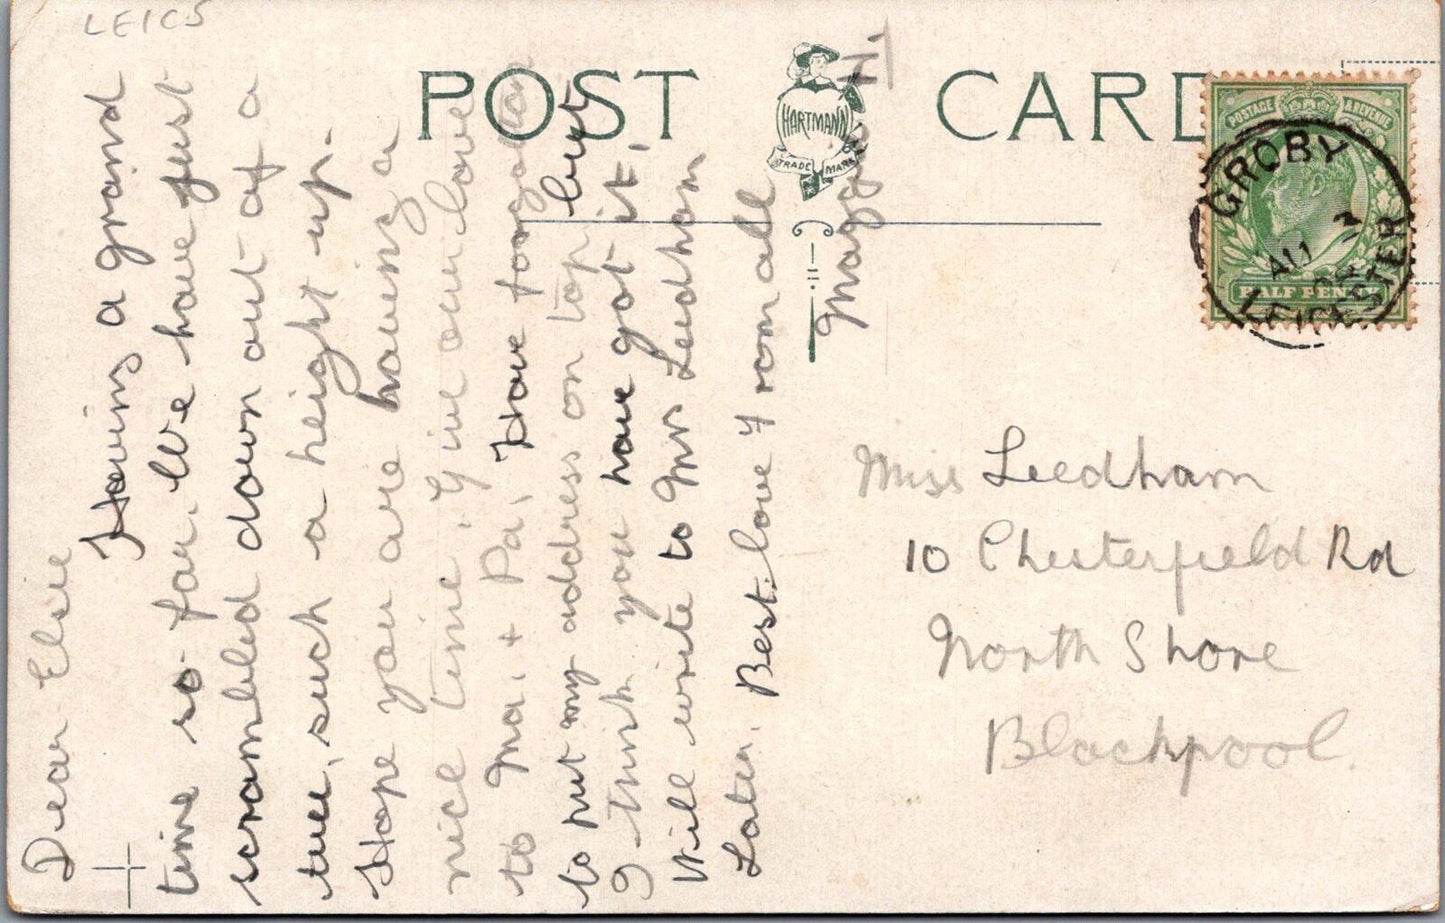 LEICS
POST CARD
HARTMANN
TRADE MARK
POSTAGE & REVENUE
HALF PENNY
GROBY
AU 3
LEICESTER
Dear Elsie
Having a grand
time so far. We have just
scrambled down out of a
tree, such a height up.
Hope you are having a
nice time. Give our love
to Ma. + Pa. Have forgotten
to put my address on top but
I think you have got it.
Will write to Mrs Leedham
Later. Best love from all
Maggie H.
Miss Leedham
10 Chesterfield Rd
North Shore
Blackpool.